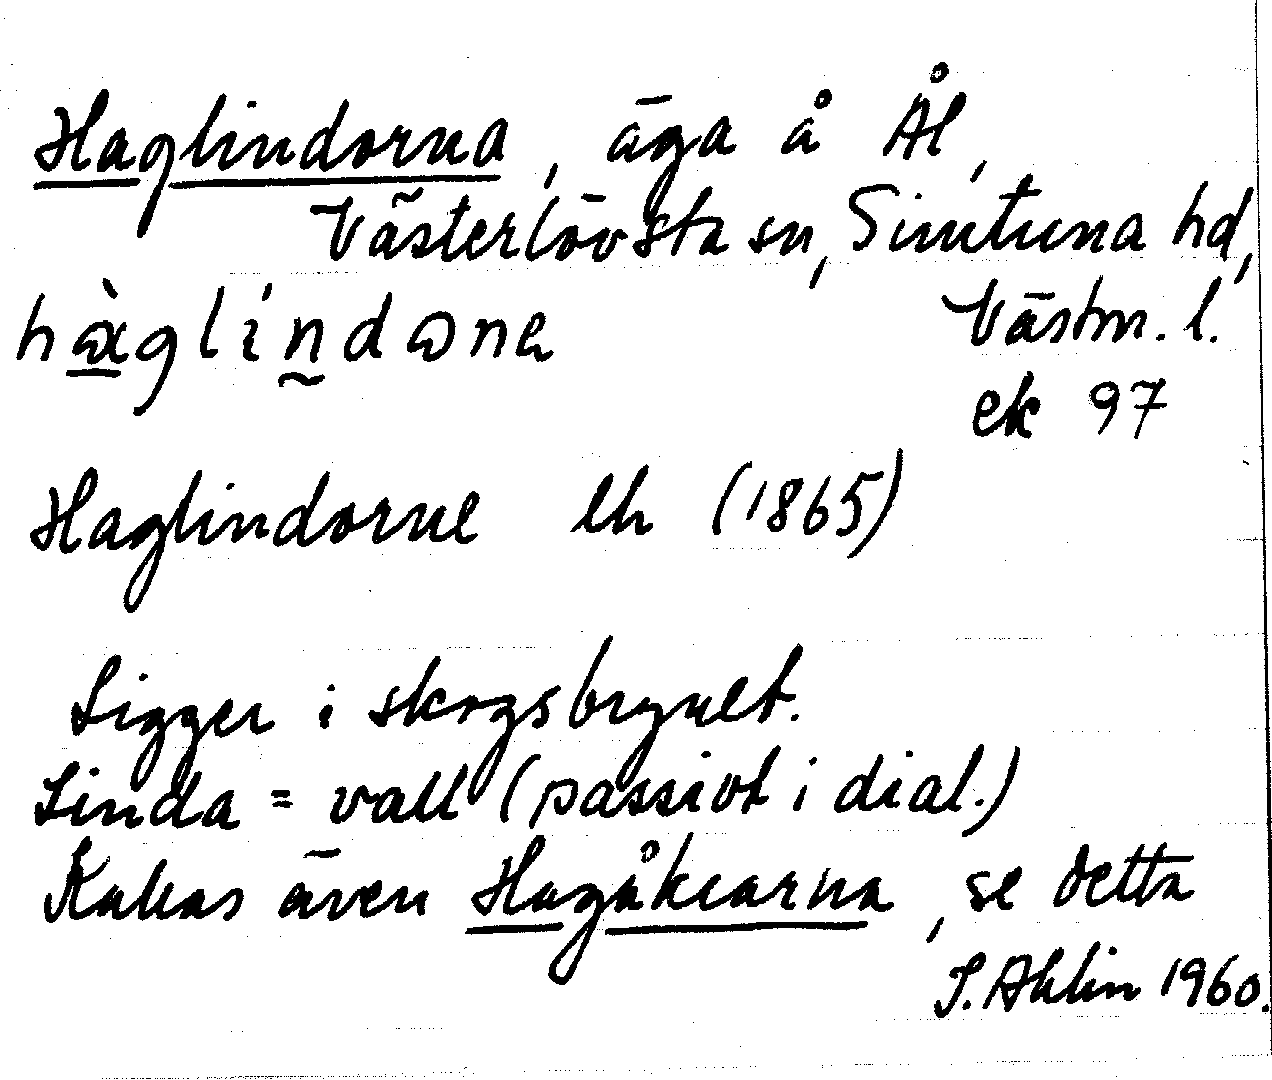 Haglindorna, äga å Ål,
Västerlövsta sn, Simtuna hd,
hàglíndɷna Västm. l.
ek 97
Haglindorne lh (1865)
Ligger i skogsbrynet.
Linda = vall (passivt i dial.)
Kallas även Hagåkrarna, se detta
S. Ahlin 1960.